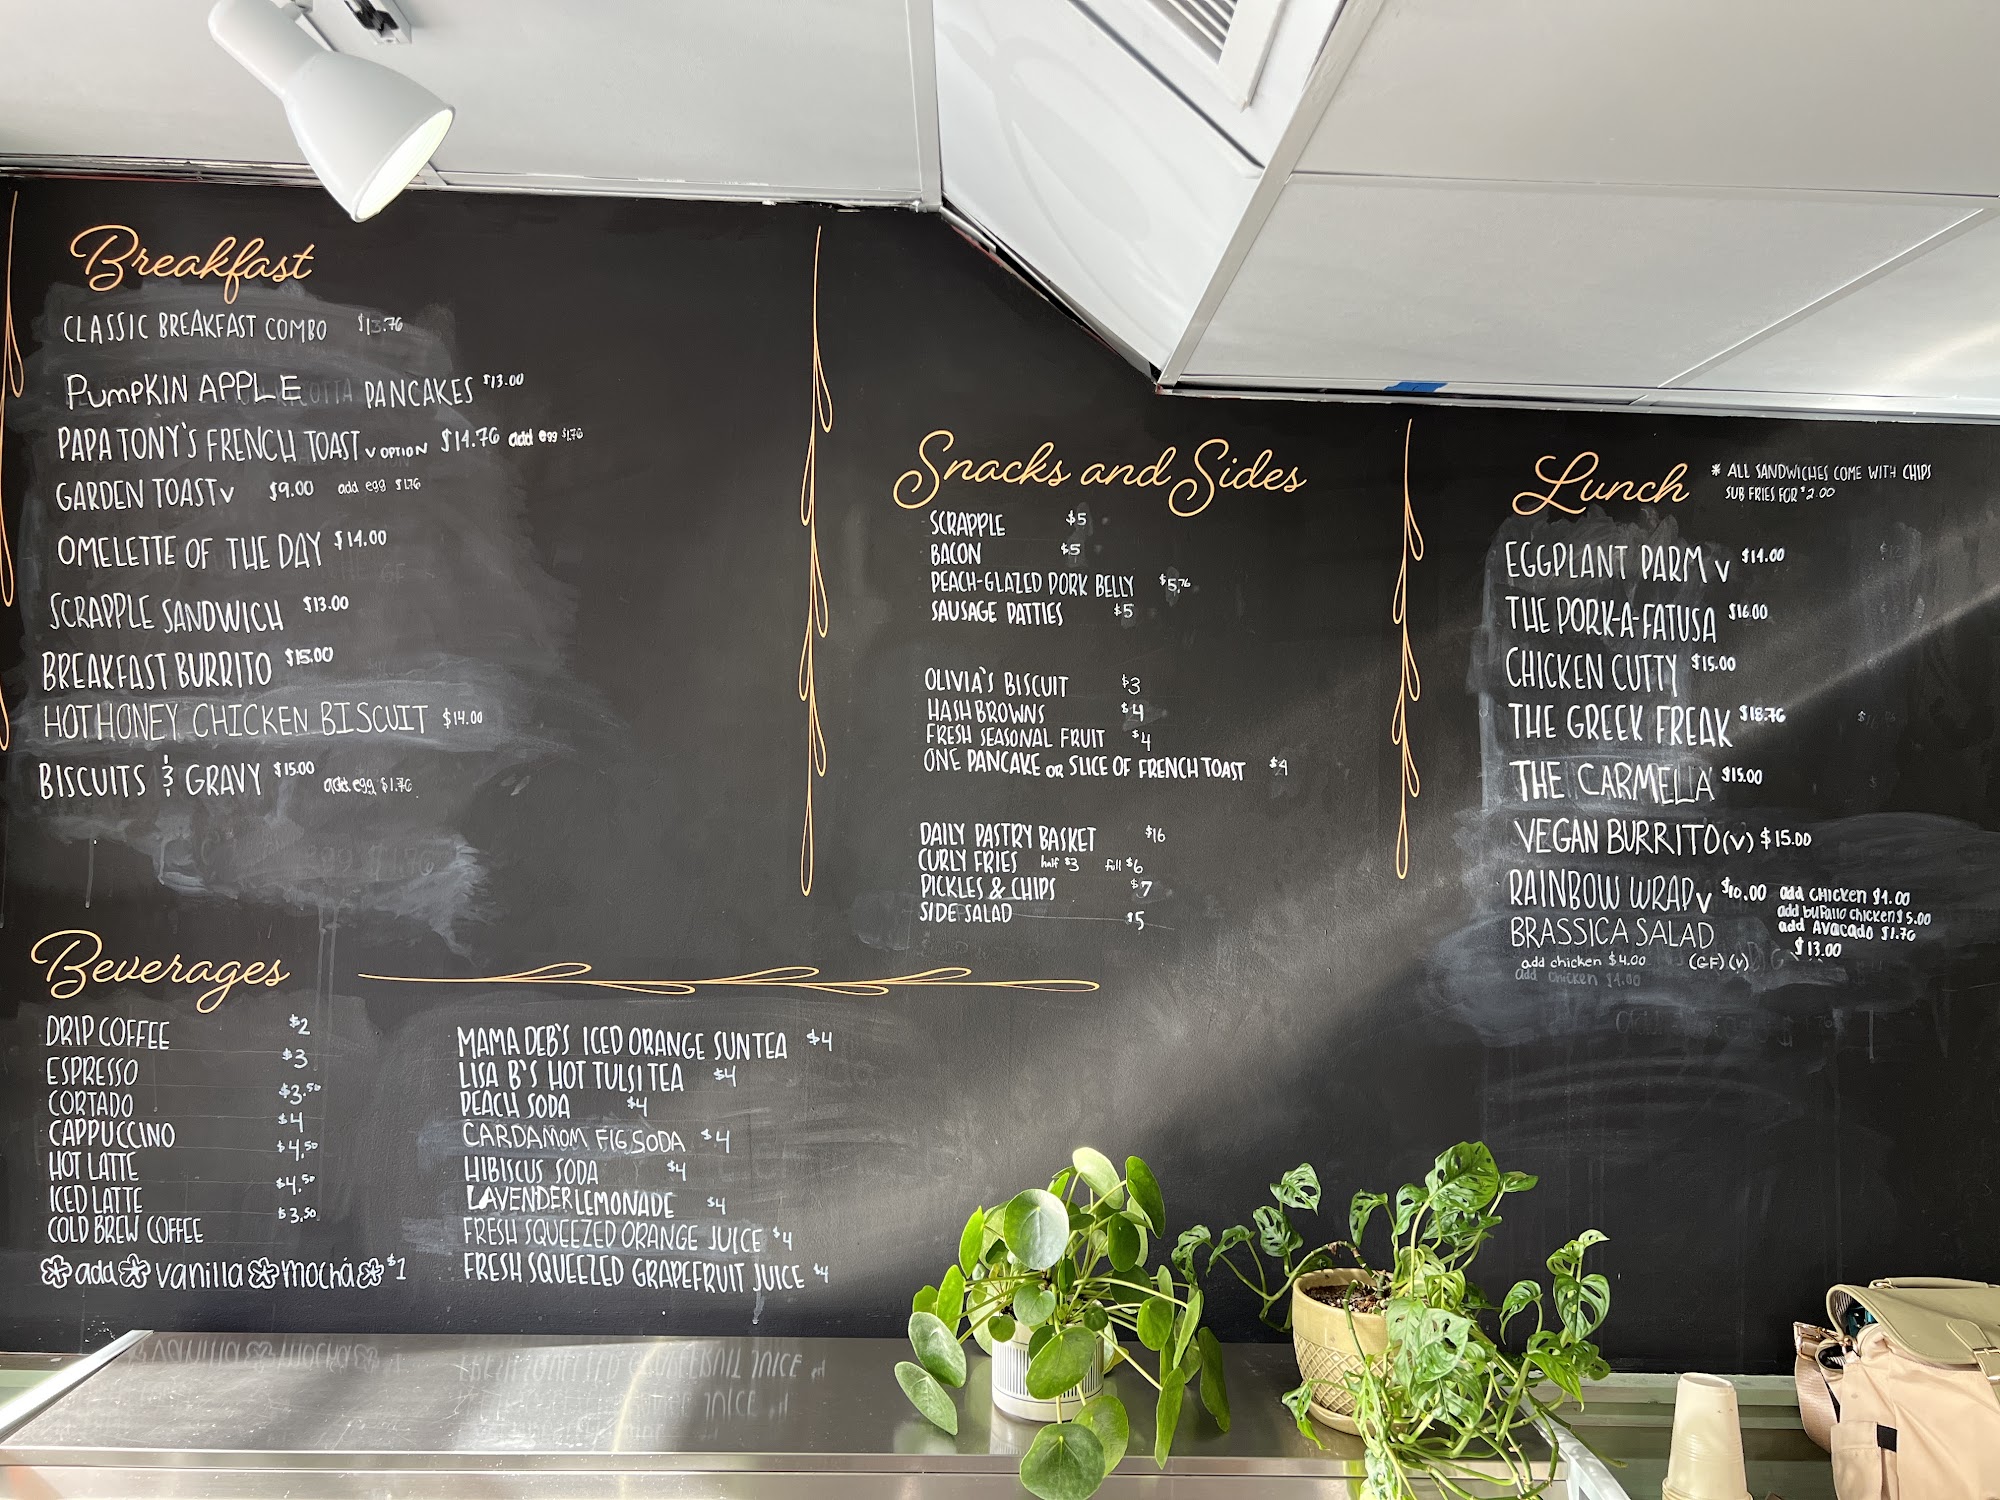 Breakfast
CLASSIC BREAKFAST COMBO $13.76
PUMPKIN APPLE PANCAKES $13.00
PAPA TONY'S FRENCH TOAST V OPTION $14.76 add egg $1.76
GARDEN TOAST V $9.00 add egg $1.76
OMELETTE OF THE DAY $14.00
SCRAPPLE SANDWICH $13.00
BREAKFAST BURRITO $15.00
HOT HONEY CHICKEN BISCUIT $14.00
BISCUITS & GRAVY $15.00 add egg $1.76
Beverages
DRIP COFFEE $2
ESPRESSO $3
CORTADO $3.50
CAPPUCCINO $4
HOT LATTE $4.50
ICED LATTE $4.50
COLD BREW COFFEE $3.50
add vanilla mocha $1
MAMA DEB'S ICED ORANGE SUN TEA $4
LISA B'S HOT TULSI TEA $4
PEACH SODA $4
CARDAMOM FIG SODA $4
HIBISCUS SODA $4
LAVENDER LEMONADE $4
FRESH SQUEEZED ORANGE JUICE $4
FRESH SQUEEZED GRAPEFRUIT JUICE $4
Snacks and Sides
SCRAPPLE $5
BACON $5
PEACH-GLAZED PORK BELLY $5.76
SAUSAGE PATTIES $5
OLIVIA'S BISCUIT $3
HASH BROWNS $4
FRESH SEASONAL FRUIT $4
ONE PANCAKE OR SLICE OF FRENCH TOAST $4
DAILY PASTRY BASKET $16
CURLY FRIES half $3 full $6
PICKLES & CHIPS $7
SIDE SALAD $5
Lunch
* ALL SANDWICHES COME WITH CHIPS
SUB FRIES FOR $2.00
EGGPLANT PARM V $14.00
THE PORK-A-FATUSA $16.00
CHICKEN CUTTY $15.00
THE GREEK FREAK $18.76
THE CARMELLA $15.00
VEGAN BURRITO (V) $15.00
RAINBOW WRAP V $10.00 add CHICKEN $4.00
add buffalo chicken $5.00
add AVOCADO $1.76
BRASSICA SALAD $13.00
add chicken $4.00 (GF) (V)
add chicken $4.00